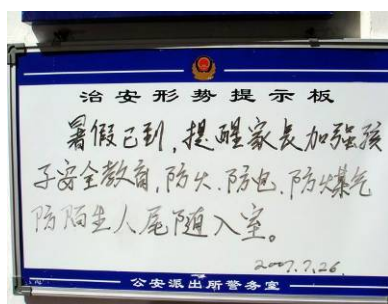 治安形势提示板
暑假已到，提醒家长加强孩
子安全教育，防火、防电、防煤气
防陌生人尾随入室。
2007.7.26.
公安派出所警务室